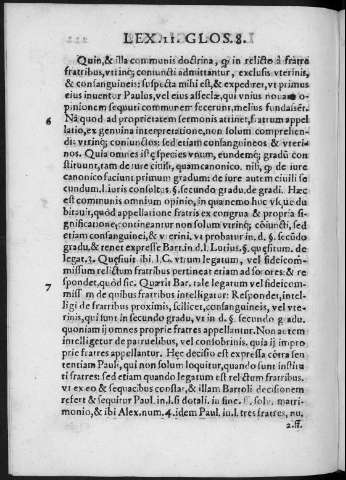 LEX. 11. GLOS. 8.
Quin, & illa communis doctrina, ꝙ in relicto à fratre
fratribus, vtrinq; coniuncti admittantur, exclusis vterinis,
& consanguineis: suspecta mihi est, & expediret, vt primus
eius inuentor Paulus, vel eius asseclæ, qui vnius noua o-
pinionem sequuti communem fecerunt, melius fundassēt.
6 Nã quod ad proprietatem sermonis attinet, fratrum appel
latio, ex genuina interpretatione, non solum comprehen-
dit vtrinq; coniunctos: sed etiam consanguineos & vteri-
nos. Quia omnes istę species vnum, eundemq; gradũ con
stituunt, tam de iure ciuili, quam canonico. nisi, ꝙ de iure
canonico faciunt primum gradum: de iure autem ciuili se
cundum. l. iuris consultus. §. secundo gradu. de gradi. Hæc
est communis omnium opinio, in qua nemo huc vsque du
bitauit, quòd appellatione fratris ex congrua & propria si-
gnificatione, contineantur non solum vtrinq; cõiuncti, sed
etiam consanguinei, & vterini. vt probatur in d. §. secũdo
gradu, & tenet expresse Bart. in d. l. Lutius. §. quęsitum. de
legat. 3. Quęsiuit ibi. l. C. vtrum legatum, vel fideicom-
missum relictum fratribus pertineat etiam ad sorores: & re
7 spondet, quòd sic. Quærit Bar. tale legatum vel fideicom-
missum de quibus fratribus intelligatur: Respondet, intel-
ligi de fratribus proximis, scilicet, consanguineis, vel vte-
rinis, qui sunt in secundo gradu, vt in d. §. secundo gradu.
quoniam ij omnes proprie fratres appellantur. Non autem
intelligetur de patruelibus, vel consobrinis. quia ij impro
prie fratres appellantur. Hęc decisio est expressa cõtra sen
tentiam Pauli, qui non solum loquitur, quando sunt institu
ti fratres: sed etiam quando legatum est relictum fratribus.
vt ex eo & sequacibus constat, & illam Bartoli decisionem
refert & sequitur Paul. in. l. si dotali. in fine. ff. solu. matri-
monio, & ibi Alex. num. 4. idem Paul. in. l. tres fratres, nu.
2. ff.